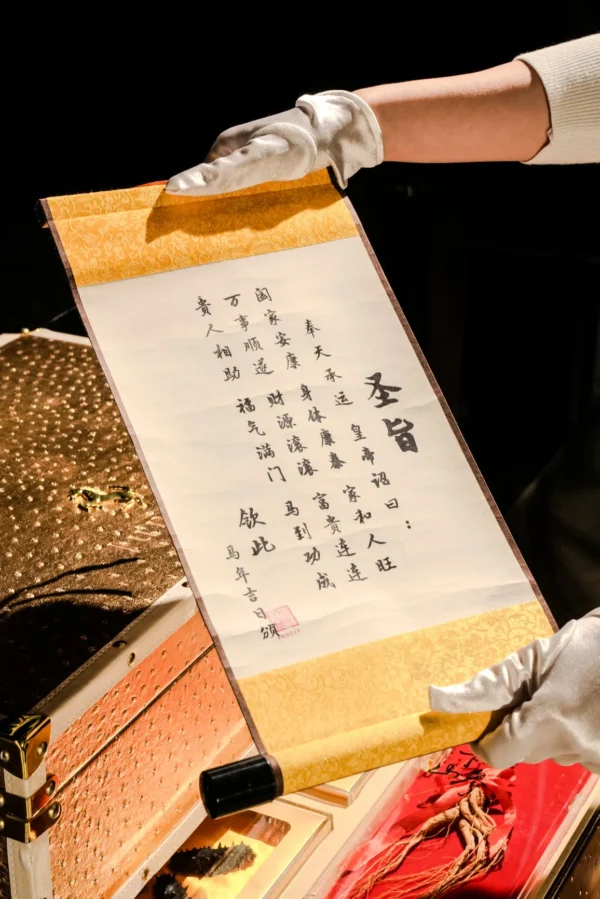 圣旨
奉天承运 皇帝诏曰：
阖家安康 身体康泰 家和人旺
万事顺遂 财源滚滚 富贵连连
贵人相助 福气满门 马到功成
钦此
马年吉日颁